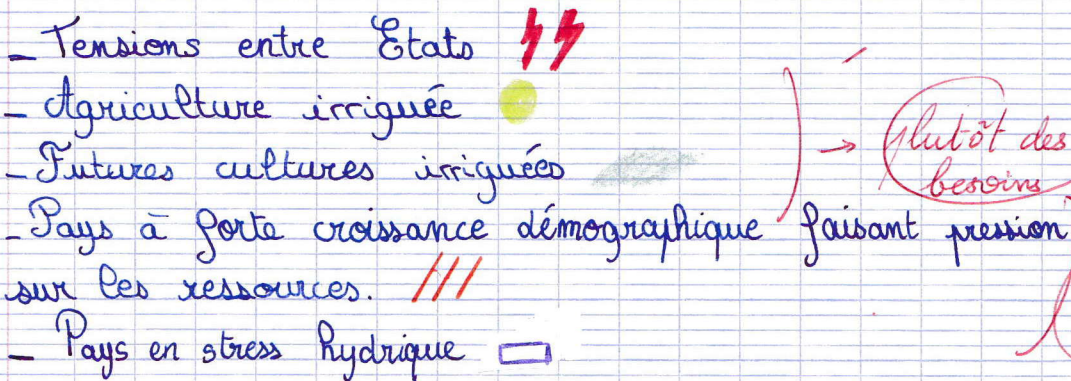 - Tensions entre Etats
- Agriculture irriguée
- Futures cultures irriguées
→ plutôt des
besoins
- Pays à forte croissance démographique faisant pression
sur les ressources.
- Pays en stress hydrique